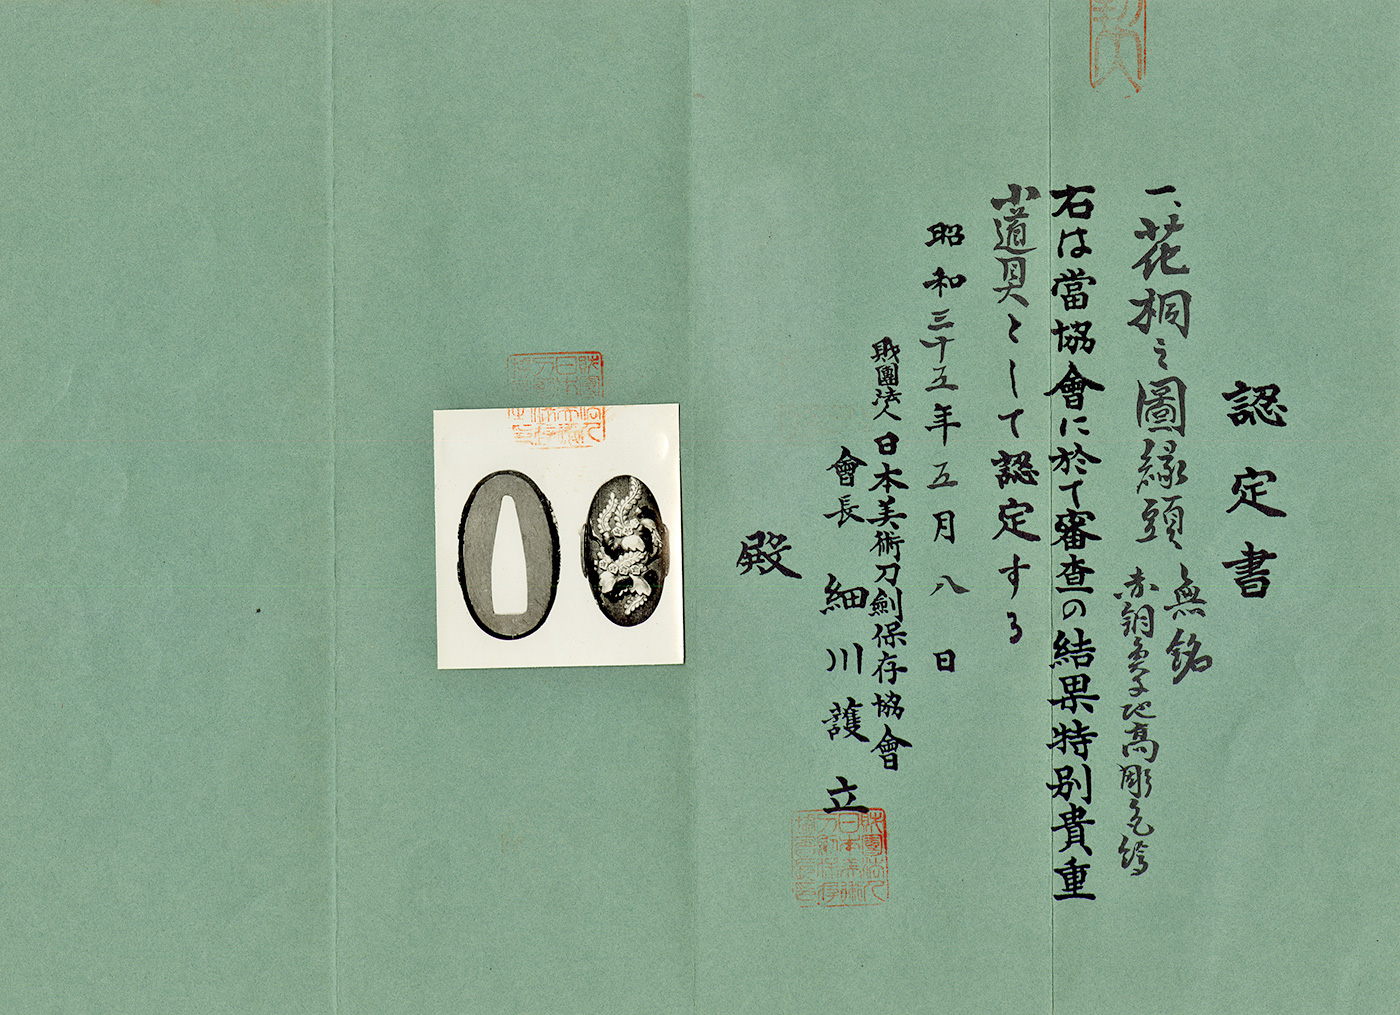 認定書
一、花桐之圖縁頭 無銘
赤銅魚子地高彫色絵
右は當協會に於て審査の結果特別貴重
小道具として認定する
昭和三十五年五月八日
財團法人日本美術刀劍保存協會
會長 細川護立
殿